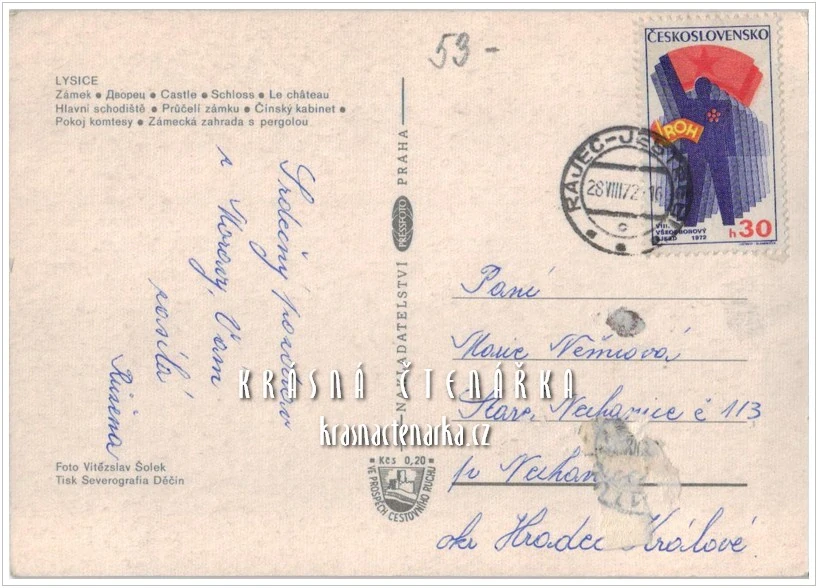 53-
LYSICE
Zámek • Дворец • Castle • Schloss • Le château
Hlavní schodiště • Průčelí zámku • Čínský kabinet •
Pokoj komtesy • Zámecká zahrada s pergolou
Srdečný pozdrav
z Moravy, Vám
zasílá
Růžena
Foto Vítězslav Šolek
Tisk Severografia Děčín
NAKLADATELSTVÍ PRESSFOTO PRAHA
Kčs 0,20
VE PROSPĚCH CESTOVNÍHO RUCHU
ČESKOSLOVENSKO
ROH
VIII.
VŠEODBOROVÝ
SJEZD 1972
h30
RÁJEC-JEST
28.VIII.72-16
c
Paní
Marie Němcová
Staré Nechanice č 113
p. Nechan
okr Hradec Králové
KRÁSNÁ ČTENÁŘKA
krasnactenarka.cz